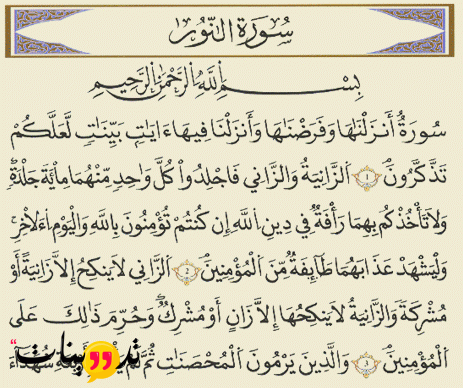 سُورَةُ النُّورِ
بِسْمِ اللَّهِ الرَّحْمَٰنِ الرَّحِيمِ
سُورَةٌ أَنزَلْنَٰهَا وَفَرَضْنَٰهَا وَأَنزَلْنَا فِيهَآ ءَايَٰتٍۭ بَيِّنَٰتٍ لَّعَلَّكُمْ
تَذَكَّرُونَ ١ ٱلزَّانِيَةُ وَٱلزَّانِي فَٱجْلِدُوا۟ كُلَّ وَٰحِدٍ مِّنْهُمَا مِا۟ئَةَ جَلْدَةٍ
وَلَا تَأْخُذْكُم بِهِمَا رَأْفَةٌ فِي دِينِ ٱللَّهِ إِن كُنتُمْ تُؤْمِنُونَ بِٱللَّهِ وَٱلْيَوْمِ ٱلْءَاخِرِ
وَلْيَشْهَدْ عَذَابَهُمَا طَآئِفَةٌ مِّنَ ٱلْمُؤْمِنِينَ ٢ ٱلزَّانِي لَا يَنكِحُ إِلَّا زَانِيَةً أَوْ
مُشْرِكَةً وَٱلزَّانِيَةُ لَا يَنكِحُهَآ إِلَّا زَانٍ أَوْ مُشْرِكٌ وَحُرِّمَ ذَٰلِكَ عَلَى
ٱلْمُؤْمِنِينَ ٣ وَٱلَّذِينَ يَرْمُونَ ٱلْمُحْصَنَٰتِ ثُمَّ شُهَدَآءَ
بنات